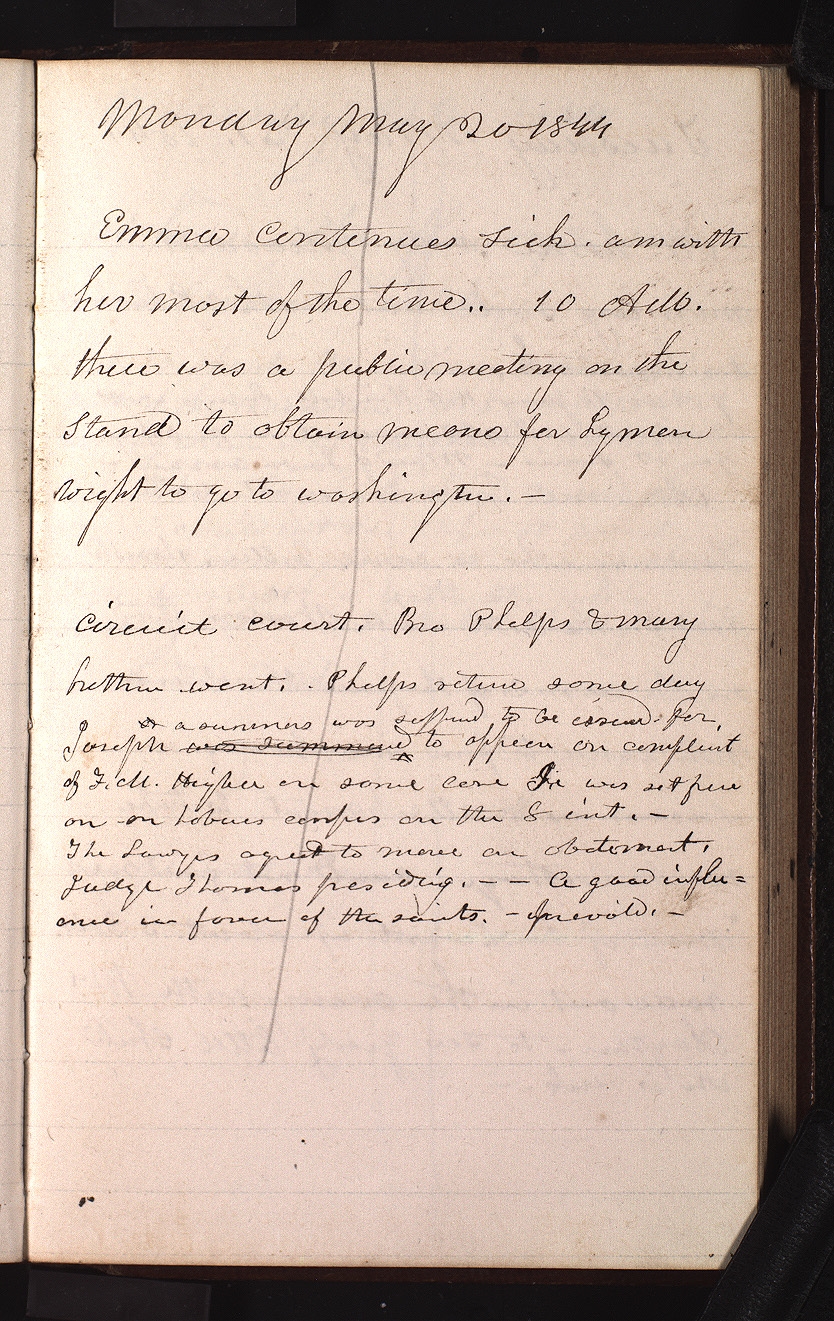 Monday May 20 1844
Emma continues sick. am with
her most of the time.. 10 A.M.
there was a public meeting on the
Stand to obtain means for Lyman
wight to go to washington. —
circuit court. Bro Phelps & many
brethren went. . Phelps return same day
a summons was suffired to be issued for
Joseph was summoned to appear on complaint
of F. M. Higbee on same case He was set free
on on habeus corpus on the 8 inst. —
The Lawyers agreed to move an abatement.
Judge Thomas presiding. — — A good influ=
ence in favor of the saints. — prevaild. —